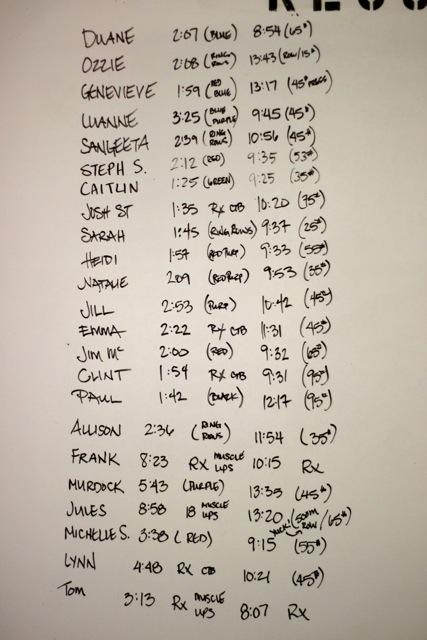 DUANE 2:07 (BLUE) 8:54 (65#)
OZZIE 2:08 (RING ROWS) 13:43 (ROW/15#)
GENEVIEVE 1:59 (RED BLUE) 13:17 (45# PRESS)
LUANNE 3:25 (BLUE PURPLE) 9:45 (45#)
SANGEETA 2:39 (RING ROWS) 10:56 (45#)
STEPH S. 2:12 (RED) 9:35 (53#)
CAITLIN 1:25 (GREEN) 9:25 (35#)
JOSH ST 1:35 Rx CTB 10:20 (75#)
SARAH 1:45 (RING ROWS) 9:37 (25#)
HEIDI 1:57 (RED/PURP) 9:33 (55#)
NATALIE 2:09 (RED/PURP) 9:53 (35#)
JILL 2:53 (PURP) 10:42 (45#)
EMMA 2:22 Rx CTB 11:31 (45#)
JIM Mc 2:00 (RED) 9:32 (65#)
CLINT 1:54 Rx CTB 9:31 (95#)
PAUL 1:42 (BLACK) 12:17 (95#)
ALLISON 2:36 (RING ROWS) 11:54 (35#)
FRANK 8:23 Rx MUSCLE UPS 10:15 Rx
MURDOCK 5:43 (PURPLE) 13:35 (45#)
JULES 8:58 18 MUSCLE UPS 13:20 (500M ROW/65#)
MICHELLE S. 3:38 (RED) 9:15 (55#)
LYNN 4:48 Rx CTB 10:21 (45#)
TOM 3:13 Rx MUSCLE UPS 8:07 Rx